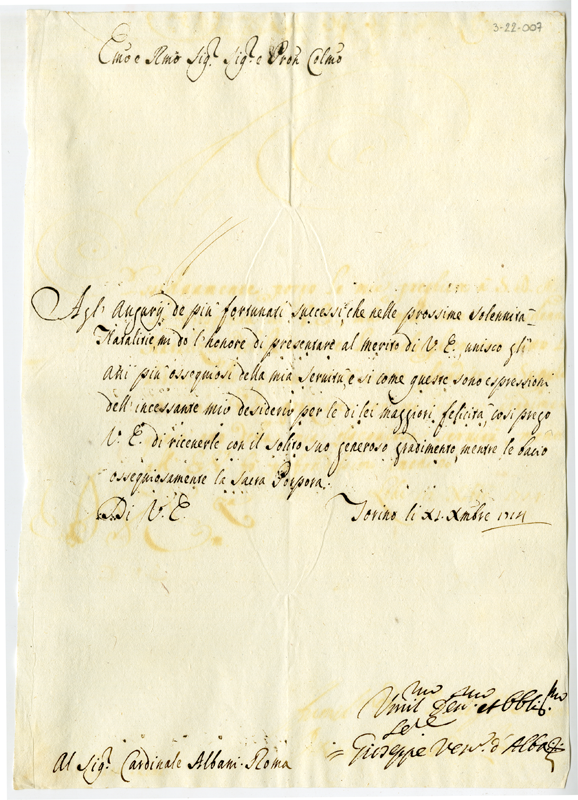 3-22-007
Emo e Rmo Sigr. Sigr. e Pron Colmo
Agl' Augurij de più fortunati successi, che nelle prossime solennità
Natalitie mi do l'honore di presentare al merito di V. E., unisco gl'
atti più ossequiosi della mia servitù, e si come queste sono espressioni
dell'incessante mio desiderio per le di lei maggiori felicità, così prego
V. E. di riceverle con il solito suo generoso gradimento, mentre le bacio
ossequiosamente la Sacra Porpora.
Di V. E.
Torino li XI. Xmbre 1714
Umilmo Devmo et Obbligmo
Serve
Giuseppe Vesc. d'Alba
Al Sigr. Cardinale Albani. Roma